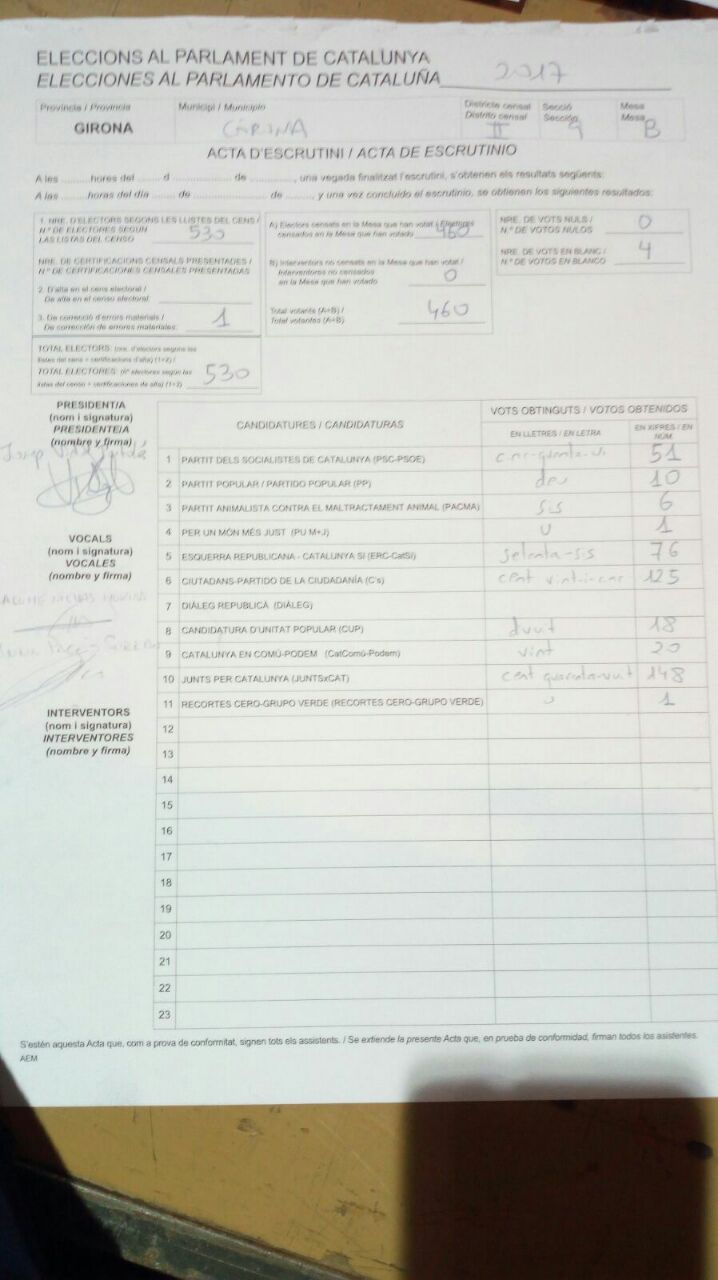 ELECCIONS AL PARLAMENT DE CATALUNYA
ELECCIONES AL PARLAMENTO DE CATALUÑA 2017
Província / Provincia
GIRONA
Municipi / Municipio
GIRONA
Districte censal
Distrito censal
II
Secció
Sección
9
Mesa
Mesa
B
ACTA D'ESCRUTINI / ACTA DE ESCRUTINIO
A les ......... hores del ...... d ........................ de ............, una vegada finalitzat l'escrutini, s'obtenen els resultats següents:
A las ......... horas del día ...... de ........................ de ........, y una vez concluido el escrutinio, se obtienen los siguientes resultados:
1. NRE. D'ELECTORS SEGONS LES LLISTES DEL CENS /
N.º DE ELECTORES SEGÚN
LAS LISTAS DEL CENSO
530
NRE. DE CERTIFICACIONS CENSALS PRESENTADES /
N.º DE CERTIFICACIONES CENSALES PRESENTADAS
2. D'alta en el cens electoral /
De alta en el censo electoral:
3. De correcció d'errors materials /
De corrección de errores materiales: 1
TOTAL ELECTORS: (nre. d'electors segons les
llistes del cens + certificacions d'alta) (1+2) /
TOTAL ELECTORES: (nº electores según las
listas del censo + certificaciones de alta) (1+2)
530
A) Electors censats en la Mesa que han votat / Electores
censados en la Mesa que han votado 460
B) Interventors no censats en la Mesa que han votat /
Interventores no censados
en la Mesa que han votado 0
Total votants (A+B) /
Total votantes (A+B) 460
NRE. DE VOTS NULS /
N.º DE VOTOS NULOS 0
NRE. DE VOTS EN BLANC /
N.º DE VOTOS EN BLANCO 4
PRESIDENT/A
(nom i signatura)
PRESIDENTE/A
(nombre y firma)
Josep
VOCALS
(nom i signatura)
VOCALES
(nombre y firma)
INTERVENTORS
(nom i signatura)
INTERVENTORES
(nombre y firma)
CANDIDATURES / CANDIDATURAS
VOTS OBTINGUTS / VOTOS OBTENIDOS
EN LLETRES / EN LETRA
EN XIFRES / EN NÚM.
1 PARTIT DELS SOCIALISTES DE CATALUNYA (PSC-PSOE) cinquanta-u 51
2 PARTIT POPULAR / PARTIDO POPULAR (PP) deu 10
3 PARTIT ANIMALISTA CONTRA EL MALTRACTAMENT ANIMAL (PACMA) sis 6
4 PER UN MÓN MÉS JUST (PU M+J) u 1
5 ESQUERRA REPUBLICANA - CATALUNYA SÍ (ERC-CatSí) setanta-sis 76
6 CIUTADANS-PARTIDO DE LA CIUDADANÍA (C's) cent vint-i-cinc 125
7 DIÀLEG REPUBLICÀ (DIÀLEG)
8 CANDIDATURA D'UNITAT POPULAR (CUP) divuit 18
9 CATALUNYA EN COMÚ-PODEM (CatComú-Podem) vint 20
10 JUNTS PER CATALUNYA (JUNTSxCAT) cent quaranta-vuit 148
11 RECORTES CERO-GRUPO VERDE (RECORTES CERO-GRUPO VERDE) u 1
12
13
14
15
16
17
18
19
20
21
22
23
S'estén aquesta Acta que, com a prova de conformitat, signen tots els assistents. / Se extiende la presente Acta que, en prueba de conformidad, firman todos los asistentes.
AEM